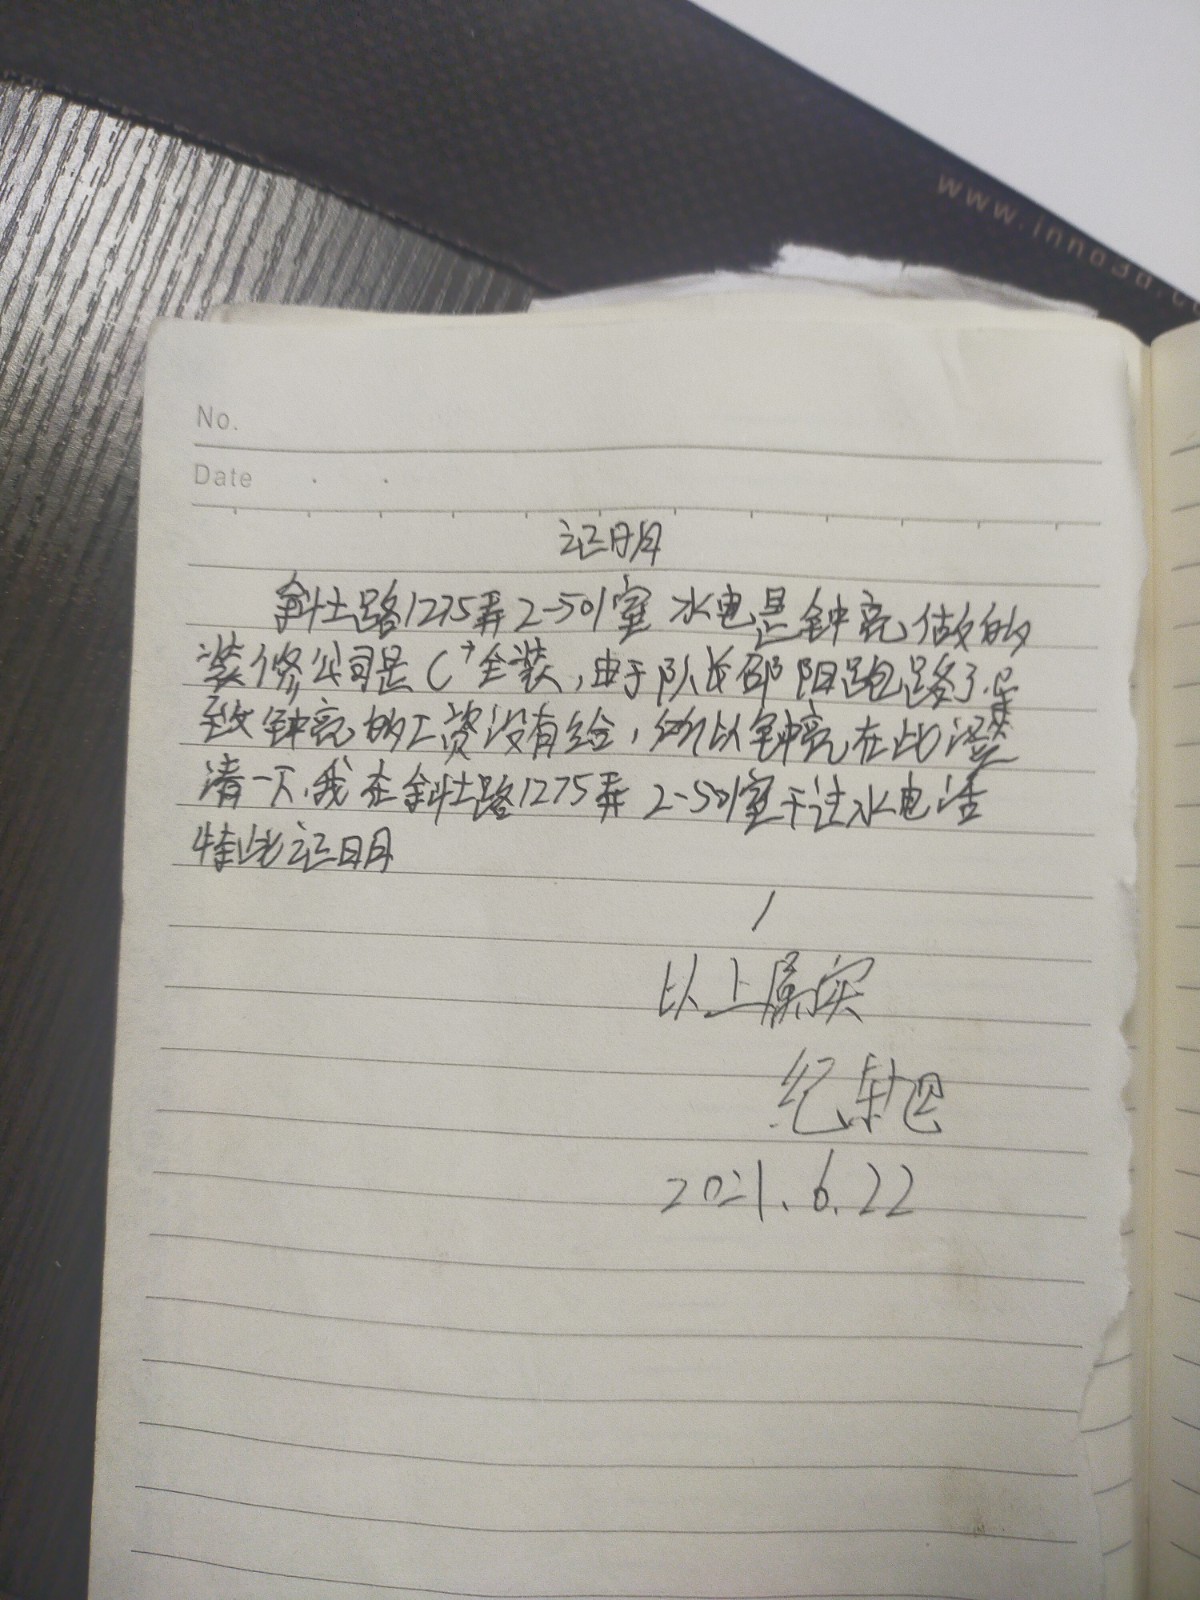 www.inno3d.co
No.
Date
证明
斜土路1275弄2-501室 水电是钟亮做的
装修公司是C+全装,由于队长邵阳跑路了.导
致钟亮的工资没有给,所以钟亮在此澄
清一下.我在斜土路1275弄 2-501室干过水电活
特此证明
以上属实
纪
2021.6.22